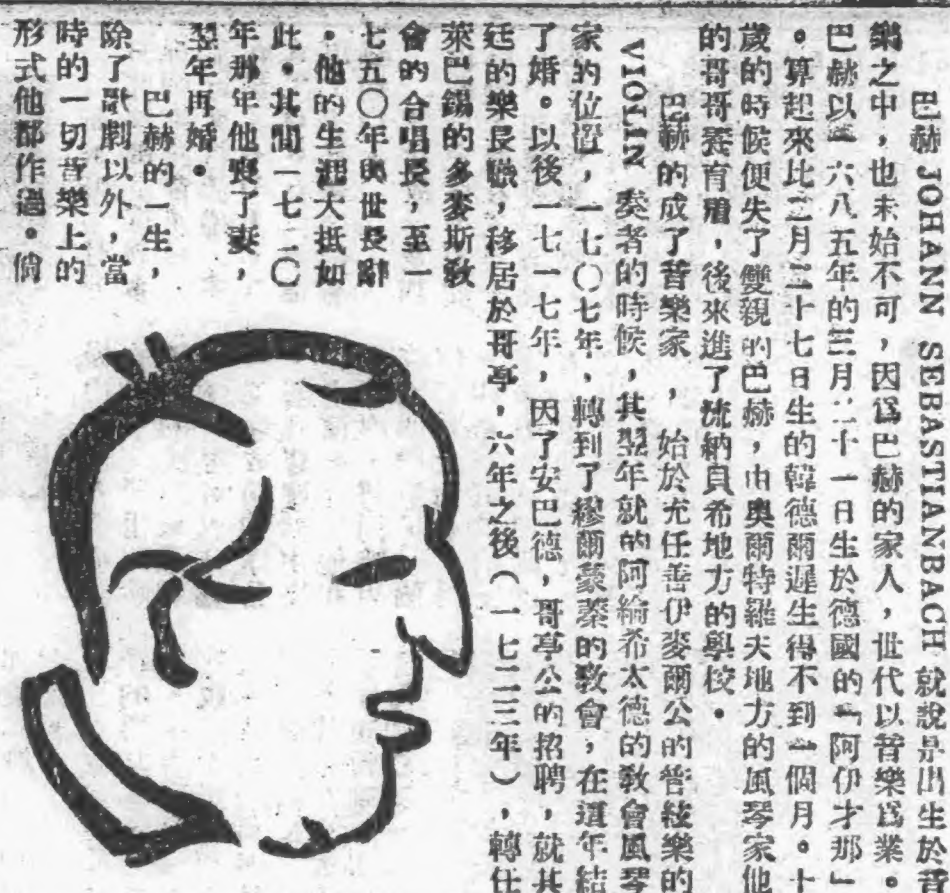 巴赫 JOHANN SEBASTIANBACH 就說是出生於音
樂之中,也未始不可,因爲巴赫的家人,世代以音樂爲業。
巴赫以一六八五年的三月二十一日生於德國的「阿伊才那」
。算起來比二月二十七日生的韓德爾遲生得不到一個月。十
歲的時候便失了雙親的巴赫,由奧爾特羅夫地方的風琴家他
的哥哥養育着,後來進了流納貝希地方的學校。
巴赫的成了音樂家,始於充任善伊麥爾公的管絃樂的
VIOLIN 奏者的時候,其翌年就的阿綸希太德的敎會風琴
家的位置,一七〇七年,轉到了繆爾蒙蓁的敎會,在這年結
了婚。以後一七一七年,因了安巴德,哥亭公的招聘,就其
廷的樂長職,移居於哥亭,六年之後(一七二三年),轉任
萊巴錫的多麥斯敎
會的合唱長,至一
七五〇年與世長辭
。他的生涯大抵如
此。其間一七二〇
年那年他喪了妻,
翌年再婚。
巴赫的一生,
除了歌劇以外,當
時的一切音樂上的
形式他都作過。倘